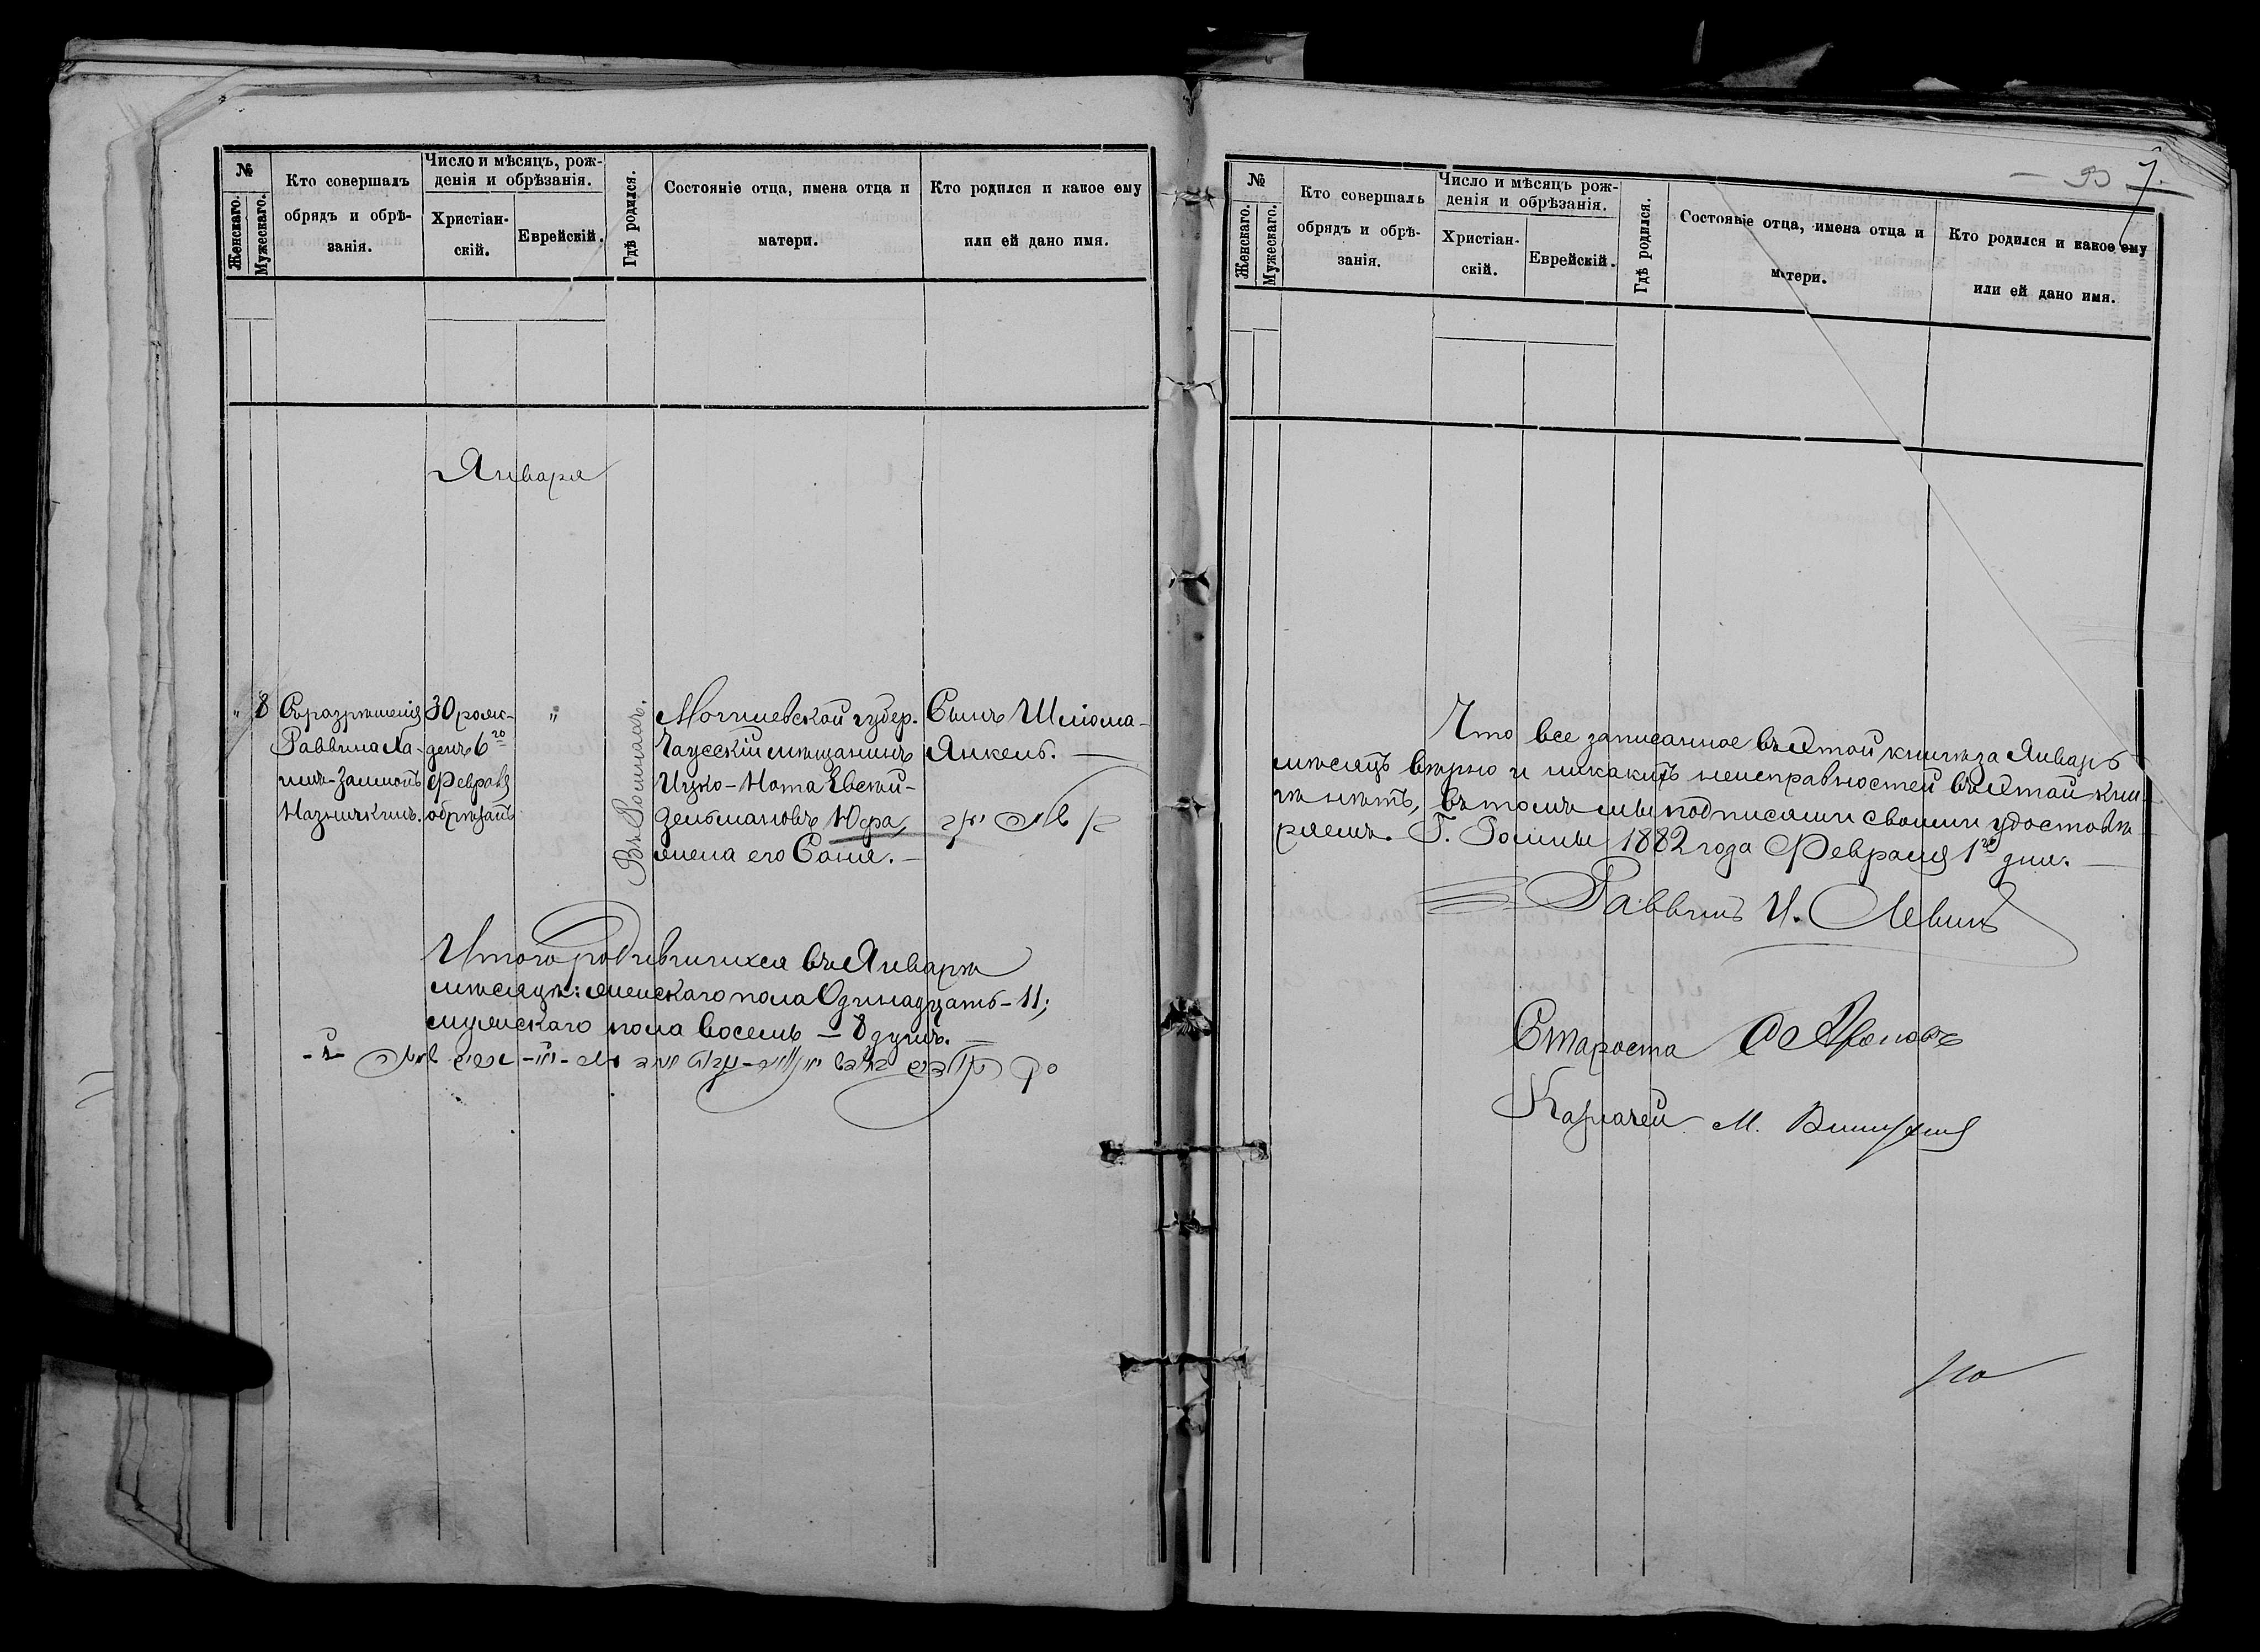 №
Женскаго.
Мужескаго.
Кто совершалъ
обрядъ и обрѣ-
занія.
Число и мѣсяцъ, рож-
денія и обрѣзанія.
Христіан-
скій.
Еврейскій.
Гдѣ родился.
Состояніе отца, имена отца и
матери.
Кто родился и какое ему
или ей дано имя.
Января
" 8
Съ разрѣшенія
Раввина Ха-
Назинскинъ.
30 рож-
денъ 6го
Февраля
обрѣзанъ
"
Въ Ромнахъ.
Могилевской губер.
Чаусскій мѣщанинъ
Ицко-Нота Евсей-
Зельмановъ Юфа,
жена его Соня. —
Сынъ Шліома-
Янкель. —
Итого родившихся въ Январѣ
мѣсяцѣ: женскаго пола Одинадцать - 11;
мужескаго пола восемь — 8 душъ. —
7.
№
Женскаго.
Мужескаго.
Кто совершалъ
обрядъ и обрѣ-
занія.
Число и мѣсяцъ рож-
денія и обрѣзанія.
Христіан-
скій.
Еврейскій.
Гдѣ родился.
Состояніе отца, имена отца и
матери.
Кто родился и какое ему
или ей дано имя.
Что все записанное въ этой книгѣ за Январь
мѣсяцъ вѣрно и никакихъ неисправностей въ этой кни-
гѣ нѣтъ, въ томъ мы подписями своими удостовѣ-
ряемъ. Г. Ромны 1882 года Февраля 1го дня. —
Раввинъ И. Левинъ
Староста Ароновъ
Казначей М.